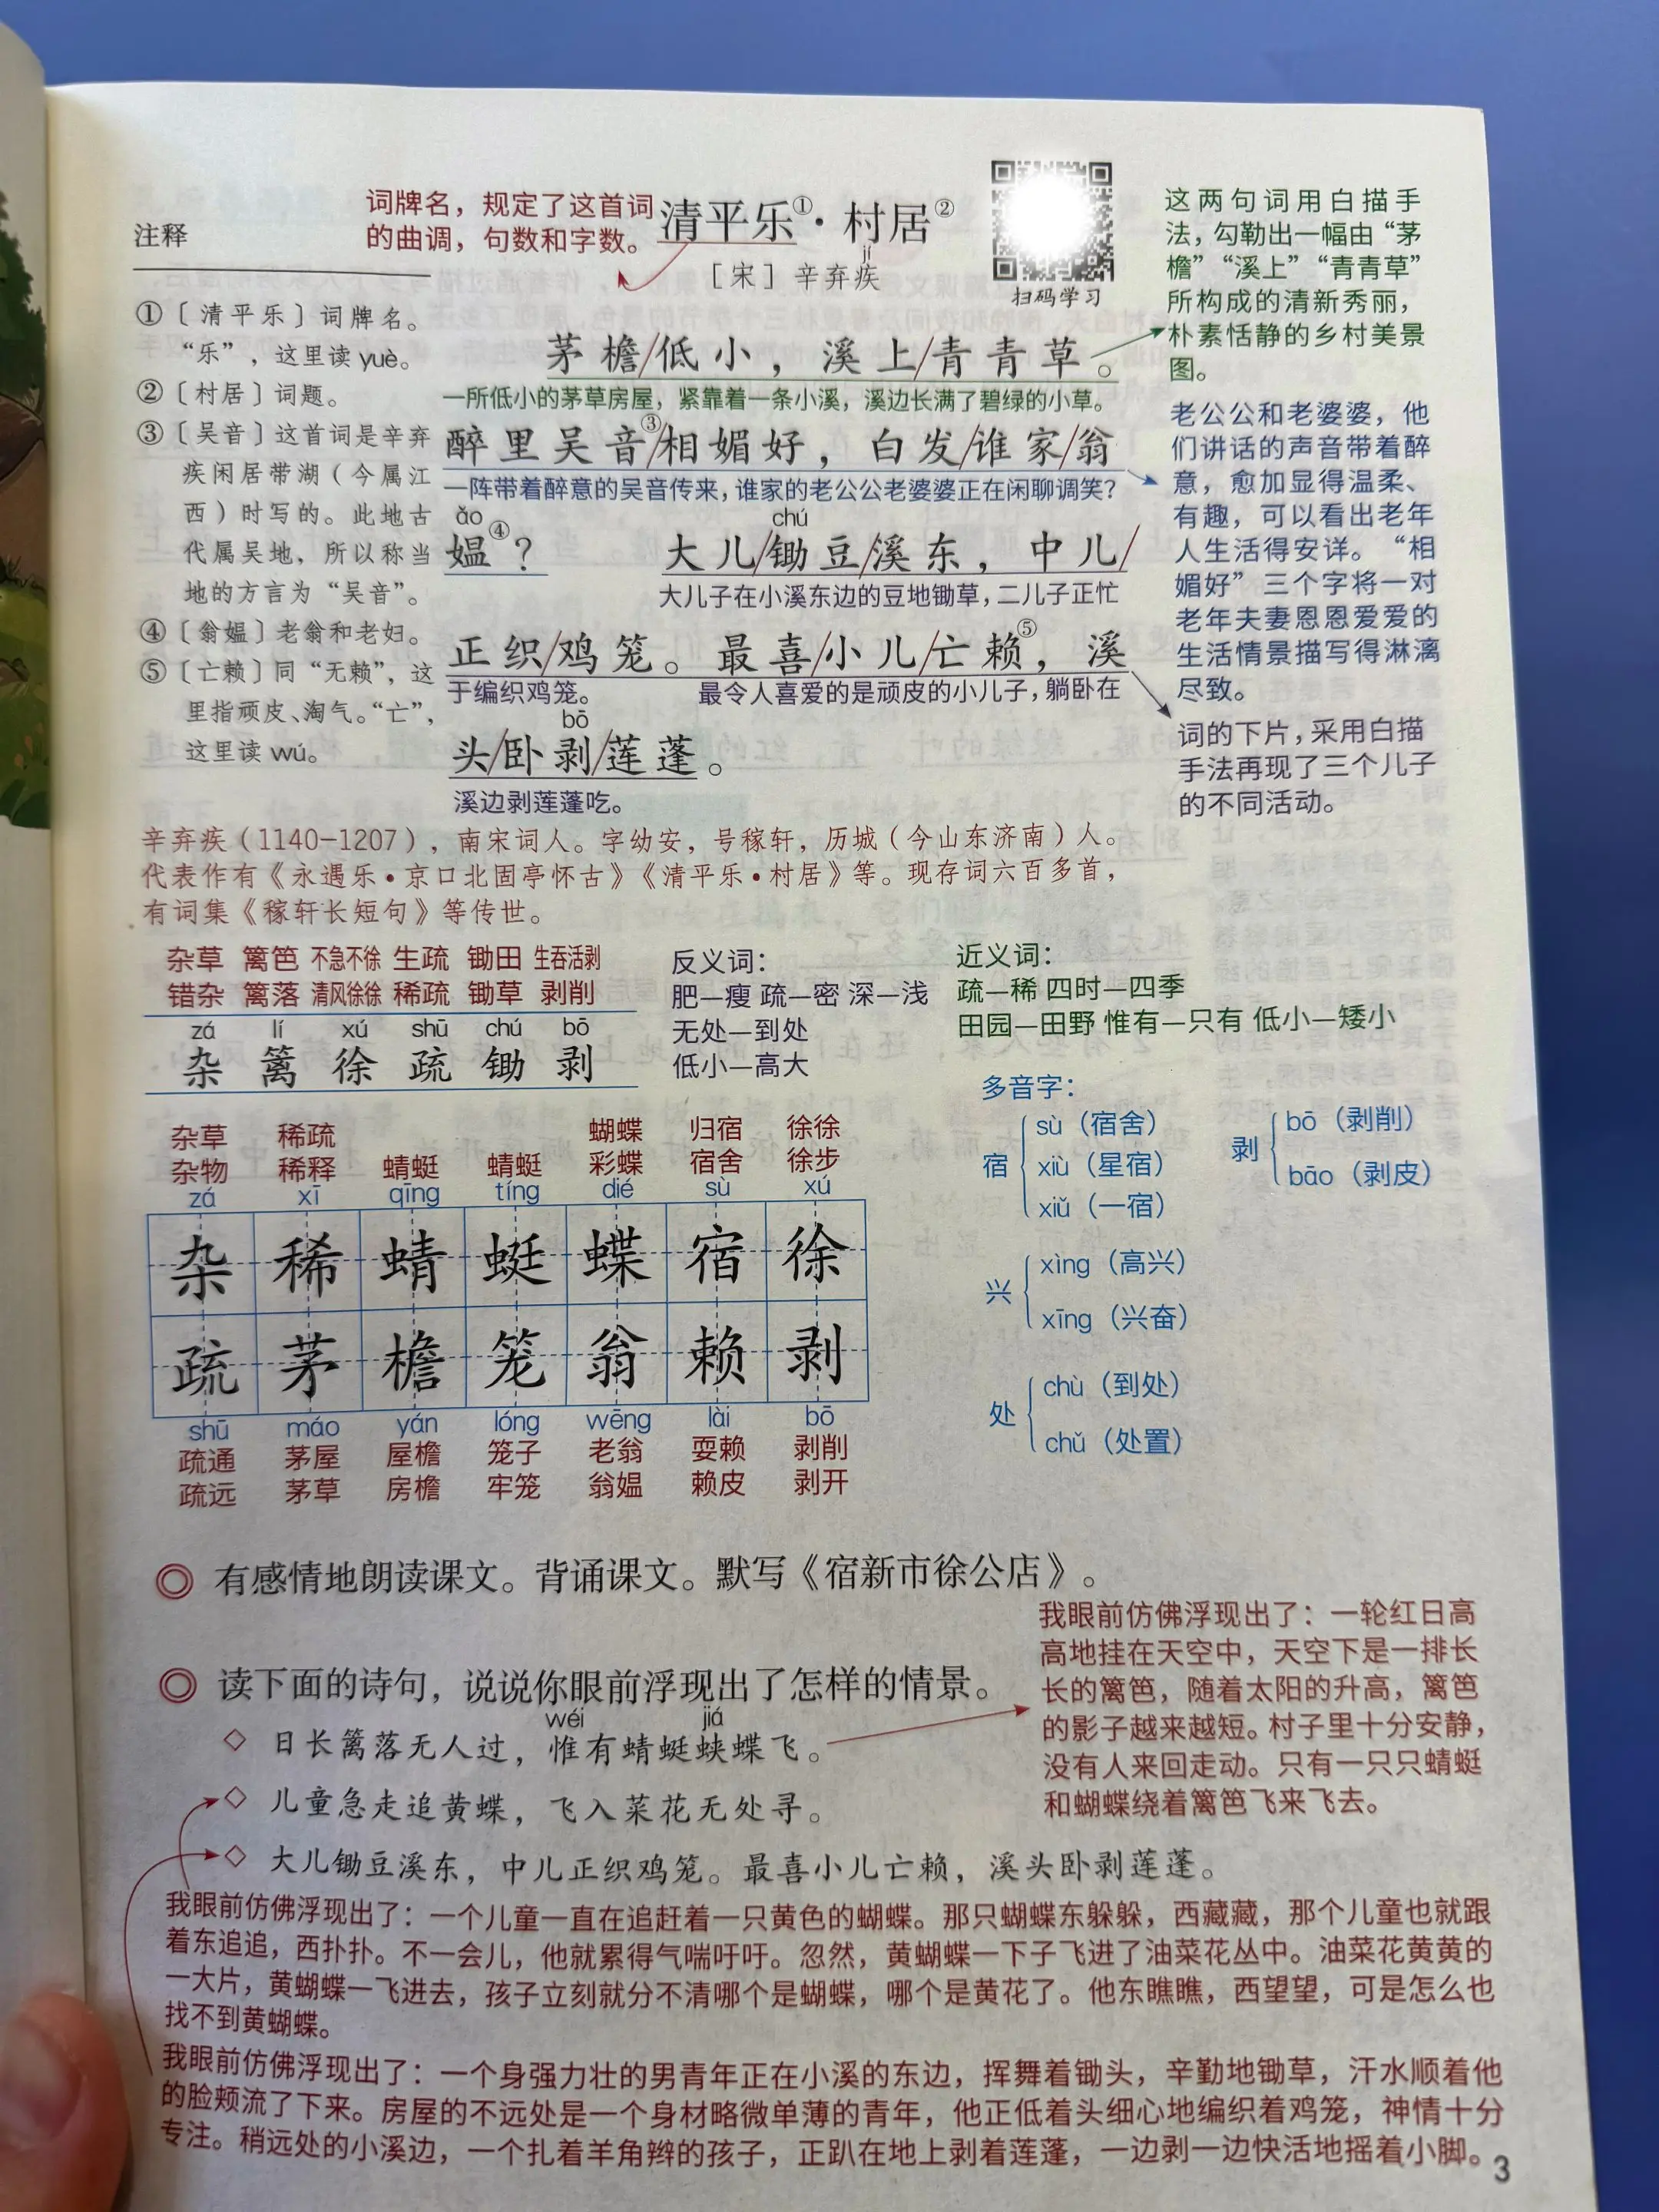 词牌名，规定了这首词
的曲调，句数和字数。
清平乐①·村居②
jí
［宋］辛弃疾
扫码学习
注释
①〔清平乐〕词牌名。
“乐”，这里读 yuè。
②〔村居〕词题。
③〔吴音〕这首词是辛弃
疾闲居带湖（今属江
西）时写的。此地古
代属吴地，所以称当
地的方言为“吴音”。
④〔翁媪〕老翁和老妇。
⑤〔亡赖〕同“无赖”，这
里指顽皮、淘气。“亡”，
这里读 wú。
茅檐/低小，溪上/青青草。
一所低小的茅草房屋，紧靠着一条小溪，溪边长满了碧绿的小草。
醉里吴音③/相媚好，白发/谁家/翁
一阵带着醉意的吴音传来，谁家的老公公老婆婆正在闲聊调笑？
ǎo chú
媪④？ 大儿/锄豆/溪东，中儿/
大儿子在小溪东边的豆地锄草，二儿子正忙
正织/鸡笼。最喜/小儿/亡赖⑤，溪
于编织鸡笼。 最令人喜爱的是顽皮的小儿子，躺卧在
bō
头/卧剥/莲蓬。
溪边剥莲蓬吃。
这两句词用白描手
法，勾勒出一幅由“茅
檐”“溪上”“青青草”
所构成的清新秀丽，
朴素恬静的乡村美景
图。
老公公和老婆婆，他
们讲话的声音带着醉
意，愈加显得温柔、
有趣，可以看出老年
人生活得安详。“相
媚好”三个字将一对
老年夫妻恩恩爱爱的
生活情景描写得淋漓
尽致。
词的下片，采用白描
手法再现了三个儿子
的不同活动。
辛弃疾（1140-1207），南宋词人。字幼安，号稼轩，历城（今山东济南）人。
代表作有《永遇乐·京口北固亭怀古》《清平乐·村居》等。现存词六百多首，
有词集《稼轩长短句》等传世。
杂草 篱笆 不急不徐 生疏 锄田 生吞活剥
错杂 篱落 清风徐徐 稀疏 锄草 剥削
zá lí xú shū chú bō
杂 篱 徐 疏 锄 剥
反义词：
肥—瘦 疏—密 深—浅
无处—到处
低小—高大
近义词：
疏—稀 四时—四季
田园—田野 惟有—只有 低小—矮小
杂草 稀疏 蝴蝶 归宿 徐徐
杂物 稀释 蜻蜓 蜻蜓 彩蝶 宿舍 徐步
zá xī qīng tíng dié sù xú
杂 稀 蜻 蜓 蝶 宿 徐
疏 茅 檐 笼 翁 赖 剥
shū máo yán lóng wēng lài bō
疏通 茅屋 屋檐 笼子 老翁 耍赖 剥削
疏远 茅草 房檐 牢笼 翁媪 赖皮 剥开
多音字：
sù（宿舍）
宿 xiù（星宿）
xiǔ（一宿）
bō（剥削）
剥
bāo（剥皮）
xìng（高兴）
兴
xīng（兴奋）
chù（到处）
处
chǔ（处置）
◎ 有感情地朗读课文。背诵课文。默写《宿新市徐公店》。
◎ 读下面的诗句，说说你眼前浮现出了怎样的情景。
wéi jiá
◇ 日长篱落无人过，惟有蜻蜓蛱蝶飞。
◇ 儿童急走追黄蝶，飞入菜花无处寻。
◇ 大儿锄豆溪东，中儿正织鸡笼。最喜小儿亡赖，溪头卧剥莲蓬。
我眼前仿佛浮现出了：一轮红日高
高地挂在天空中，天空下是一排长
长的篱笆，随着太阳的升高，篱笆
的影子越来越短。村子里十分安静，
没有人来回走动。只有一只只蜻蜓
和蝴蝶绕着篱笆飞来飞去。
我眼前仿佛浮现出了：一个儿童一直在追赶着一只黄色的蝴蝶。那只蝴蝶东躲躲，西藏藏，那个儿童也就跟
着东追追，西扑扑。不一会儿，他就累得气喘吁吁。忽然，黄蝴蝶一下子飞进了油菜花丛中。油菜花黄黄的
一大片，黄蝴蝶一飞进去，孩子立刻就分不清哪个是蝴蝶，哪个是黄花了。他东瞧瞧，西望望，可是怎么也
找不到黄蝴蝶。
我眼前仿佛浮现出了：一个身强力壮的男青年正在小溪的东边，挥舞着锄头，辛勤地锄草，汗水顺着他
的脸颊流了下来。房屋的不远处是一个身材略微单薄的青年，他正低着头细心地编织着鸡笼，神情十分
专注。稍远处的小溪边，一个扎着羊角辫的孩子，正趴在地上剥着莲蓬，一边剥一边快活地摇着小脚。
3